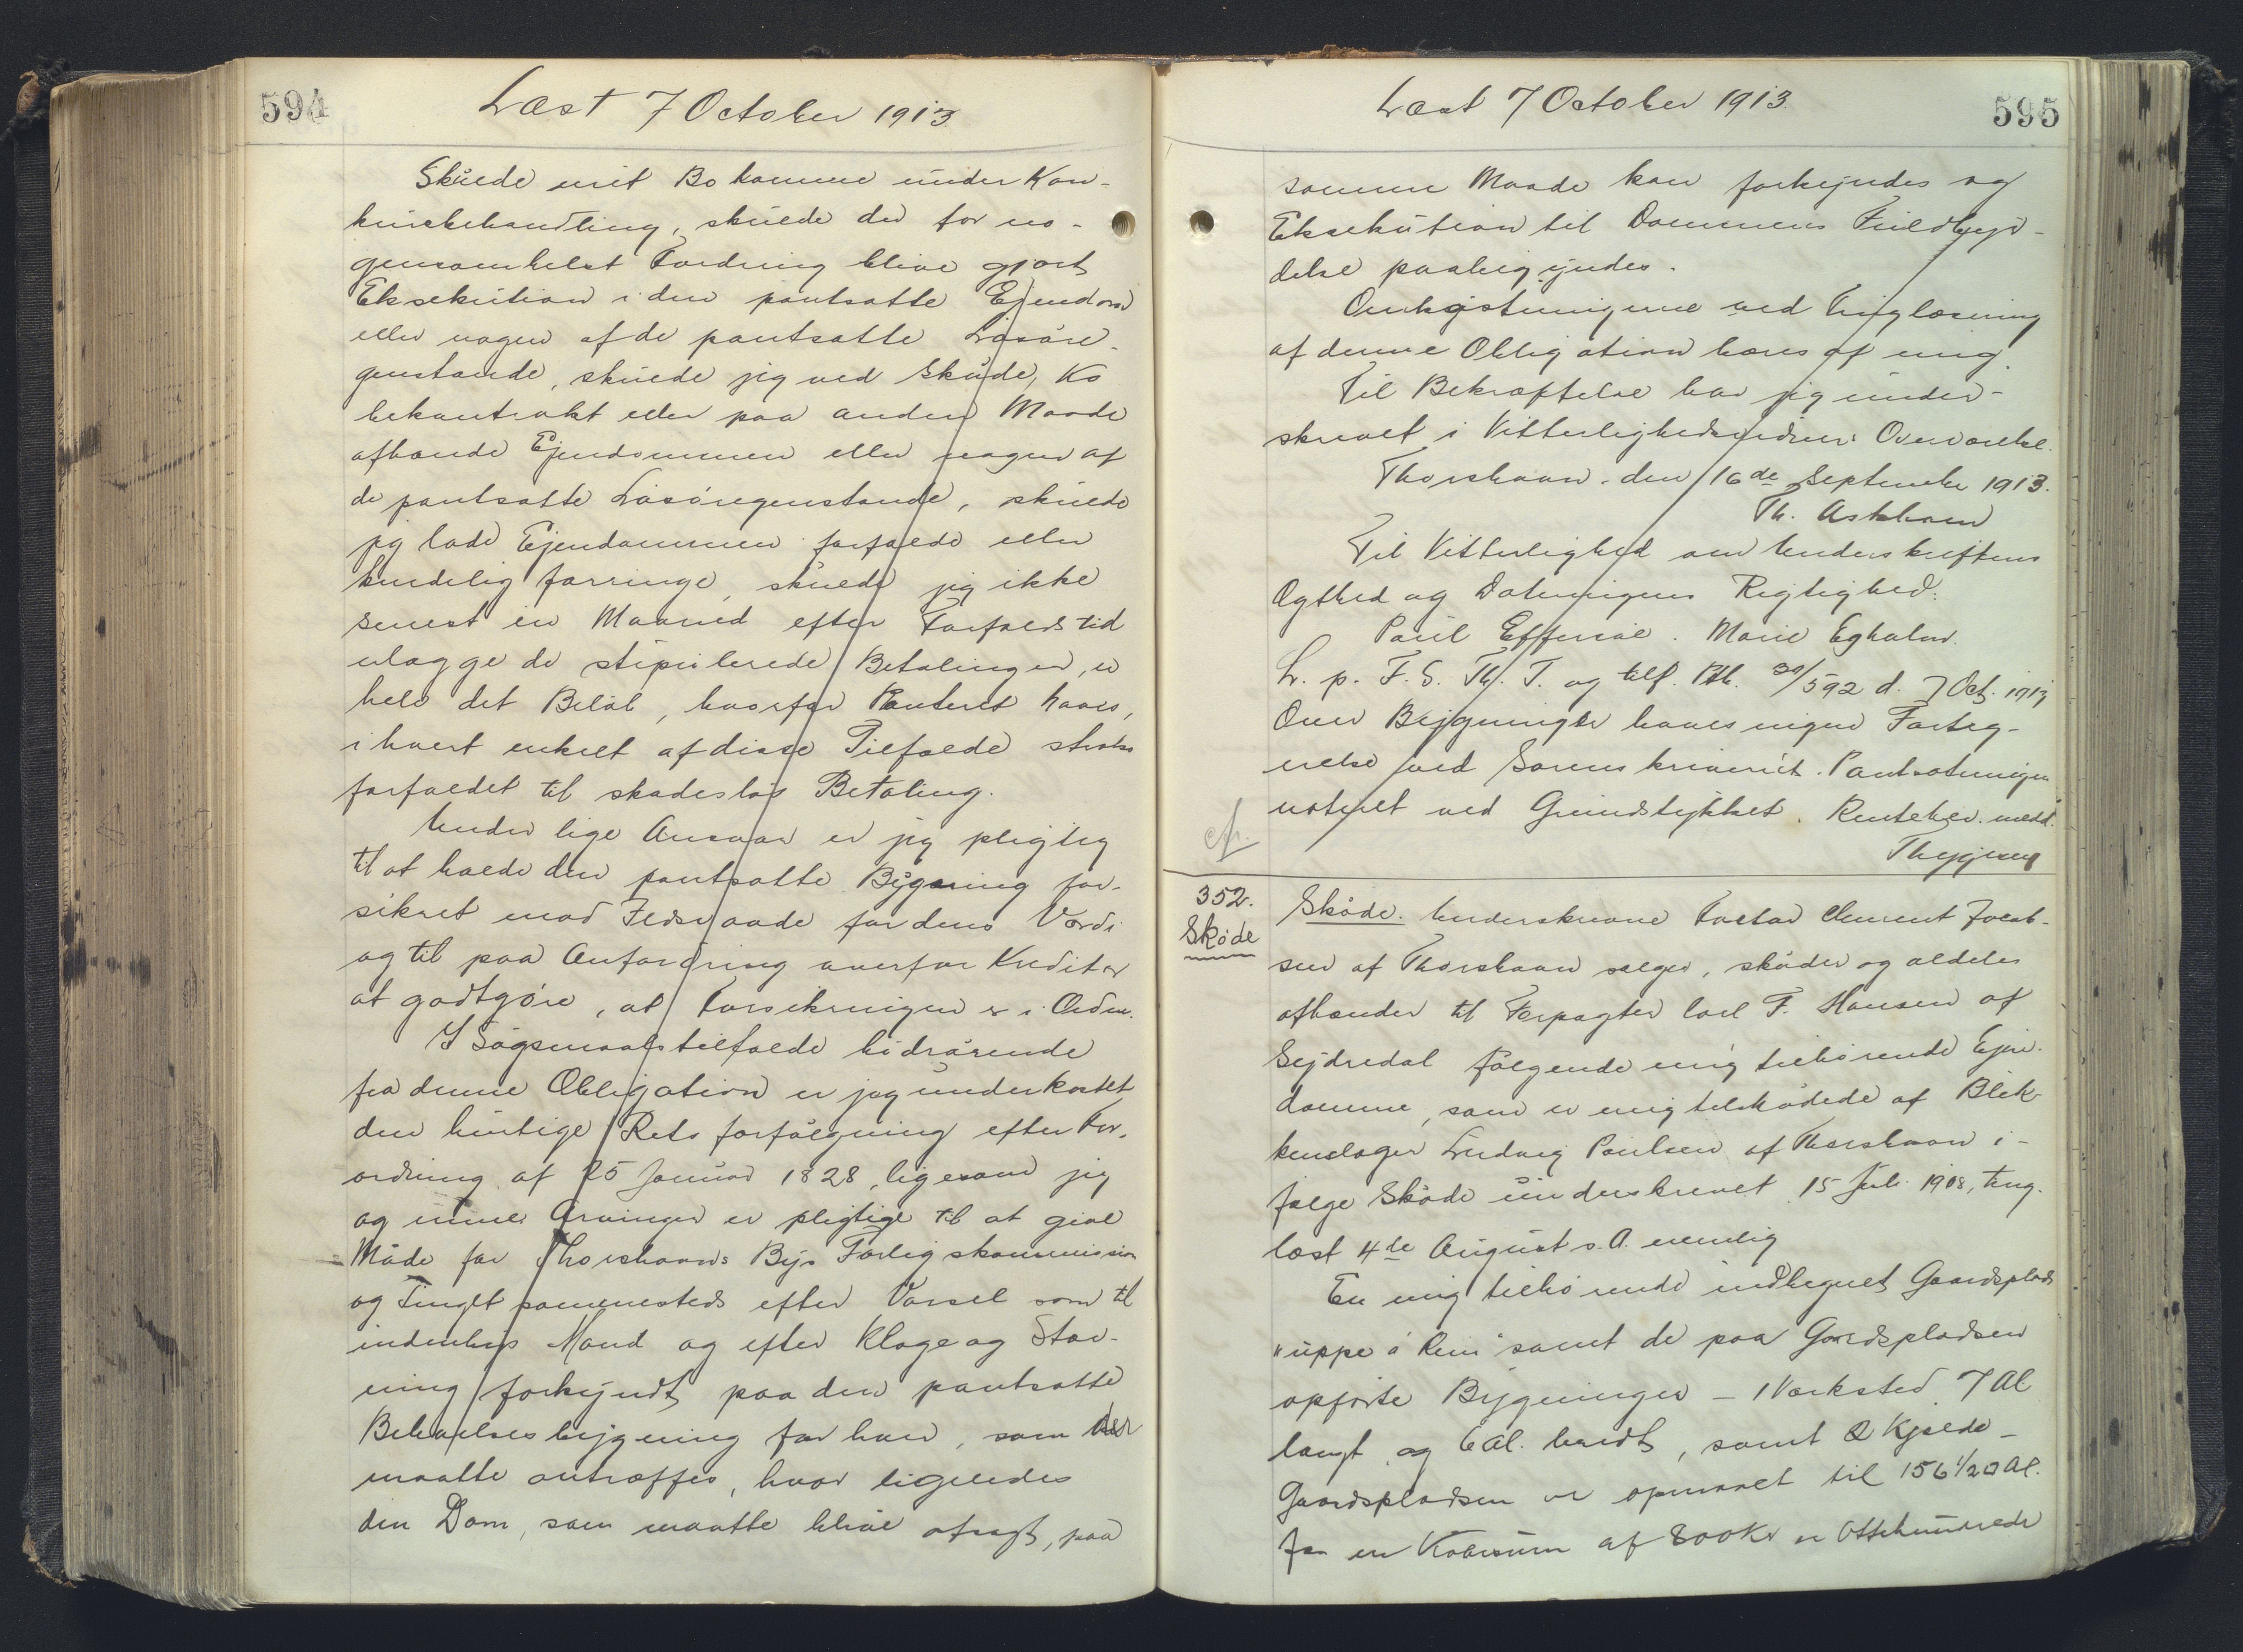 594
Læst 7 October 1913
Skulde mit Bo komme under Kon-
kursbehandling, skulde der for no-
gensomhelst Fordring blive gjort
Eksekution i den pantsatte Ejendom
eller nogen af de pantsatte Løsøre-
genstande, skulde jeg ved Skøde, Kø
bekontrakt eller paa anden Maade
afhænde Ejendommen eller nogen af
de pantsatte Løsøregenstande, skulde
jeg lade Ejendommen forfalde eller
kendelig forringe, skulde jeg ikke
senest en Maaned efter Forfaldstid
erlægge de stipulerede Betalinger, er
hele det Beløb, hvorfor Panteret haves,
i hvert enkelt af disse Tilfælde straks
forfaldet til skadesløs Betaling.
Under lige Ansvar er jeg pligtig
til at holde den pantsatte Bygning for-
sikret mod Ildsvaade for dens Værdi
og til paa Anfordring overfor Kreditor
at godtgøre, at Forsikringen er i Orden.
I Søgsmaalstilfælde hidrørende
fra denne Obligation er jeg underkastet
den hurtige Retsforfølgning efter For-
ordning af 25 Januar 1828, ligesom jeg
og mine Arvinger er pligtige til at give
Møde for Thorshavns Bys Forligskommission
og Tinget sammesteds efter Varsel som til
indenbys Mand og efter Klage og Stæv-
ning forkyndt paa den pantsatte
Beboelsesbygning for hver, som der
maatte antræffes, hvor ligeledes
den Dom, som maatte blive afsagt, paa
595
Læst 7 October 1913
samme Maade kan forkyndes og
Eksekution til Dommens Fuldbyr-
delse paabegyndes.
Omkostningerne ved Tinglæsning
af denne Obligation bæres af mig.
Til Bekræftelse har jeg under-
skrevet i Vitterlighedsvidners Overværelse.
Thorshavn, den 16de September 1913.
Th. Askham
Til Vitterlighed om Underskriftens
Ægthed og Dateringens Rigtighed:
Poul Effersøe. Marie Egholm.
L. p. F. S. Th. T. og tilf. Pth. 30/592 d. 7 Oct. 1913
Over Bygninger haves ingen Forteg-
nelse ved Sorenskriveriet. Pantsætningen
noteret ved Grundstykket. Rentebev. medd.
Thygesen
cfr.
352.
Skøde
Skøde. Underskrevne Tostar Clement Jocob-
sen af Thorshavn sælger, skøder og aldeles
afhænder til Forpagter Carl F. Hansen af
Sejdredal følgende mig tilhørende Ejen-
domme, som er mig tilskødede af Blik-
kenslager Ludvig Poulsen af Thorshavn i-
følge Skøde underskrevet 15 Juli 1908, ting-
læst 4de August s. A. nemlig
En mig tilhørende indhegnet Gaardsplads
"uppe á Reini" samt de paa Gaardspladsen
opførte Bygninger - 1 Værksted 7 Al
langt og 6 Al. bredt, samt 2 Kjælde-
Gaardspladsen er opmaalt til 156 1/2 □ Al.
for en Købesum af 800 Kr er Ottehundrede